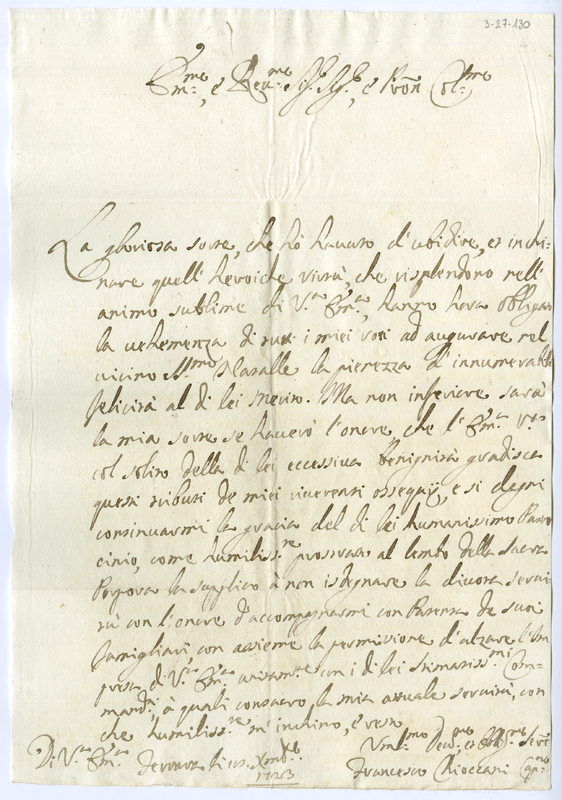 3-27-130
Em:mo, e Reu:mo Sig.r Sig.r, e Pron Col:mo
La gloriosa sorte, che hò hauuto d'ubidire, et inchi-
nare quell' heroiche virtù, che risplendono nell'
animo sublime di V.ra Em:a, hanno hora obligato
la uehemenza di tutti i miei voti ad augurare nel
uicino SS.mo Natale la pienezza d'innumerabili
felicità al di lei merito. Ma non inferiore sarà
la mia sorte se hauerò l'onore che l'Em:a V.ra
col solito della di lei eccessiua benignità gradisca
questi tributi de miei riuerenti ossequij, e si degni
continuarmi la gracia del di lei humanissimo Patro
cinio, come humiliss.te prostrata al lembo della Sacra
Porpora la supplico à non isdegnare la diuota serui
tù con l'onore d'accompagnarmi con Patente de suoi
famigliari con assieme la permissione d'alzare l'Im
presa di V.ra Em:a unitam.te con i di lei stimatiss.mi Com-
mandi, à quali consacro la mia attuale seruitù, con
che humiliss.te m'inchino, e resto
Di V.ra Em:a Ferrara li xmbre 1723
Uml:mo Deu:mo et Obl:mo Seru.e
Francesco Chioccari Cap:no